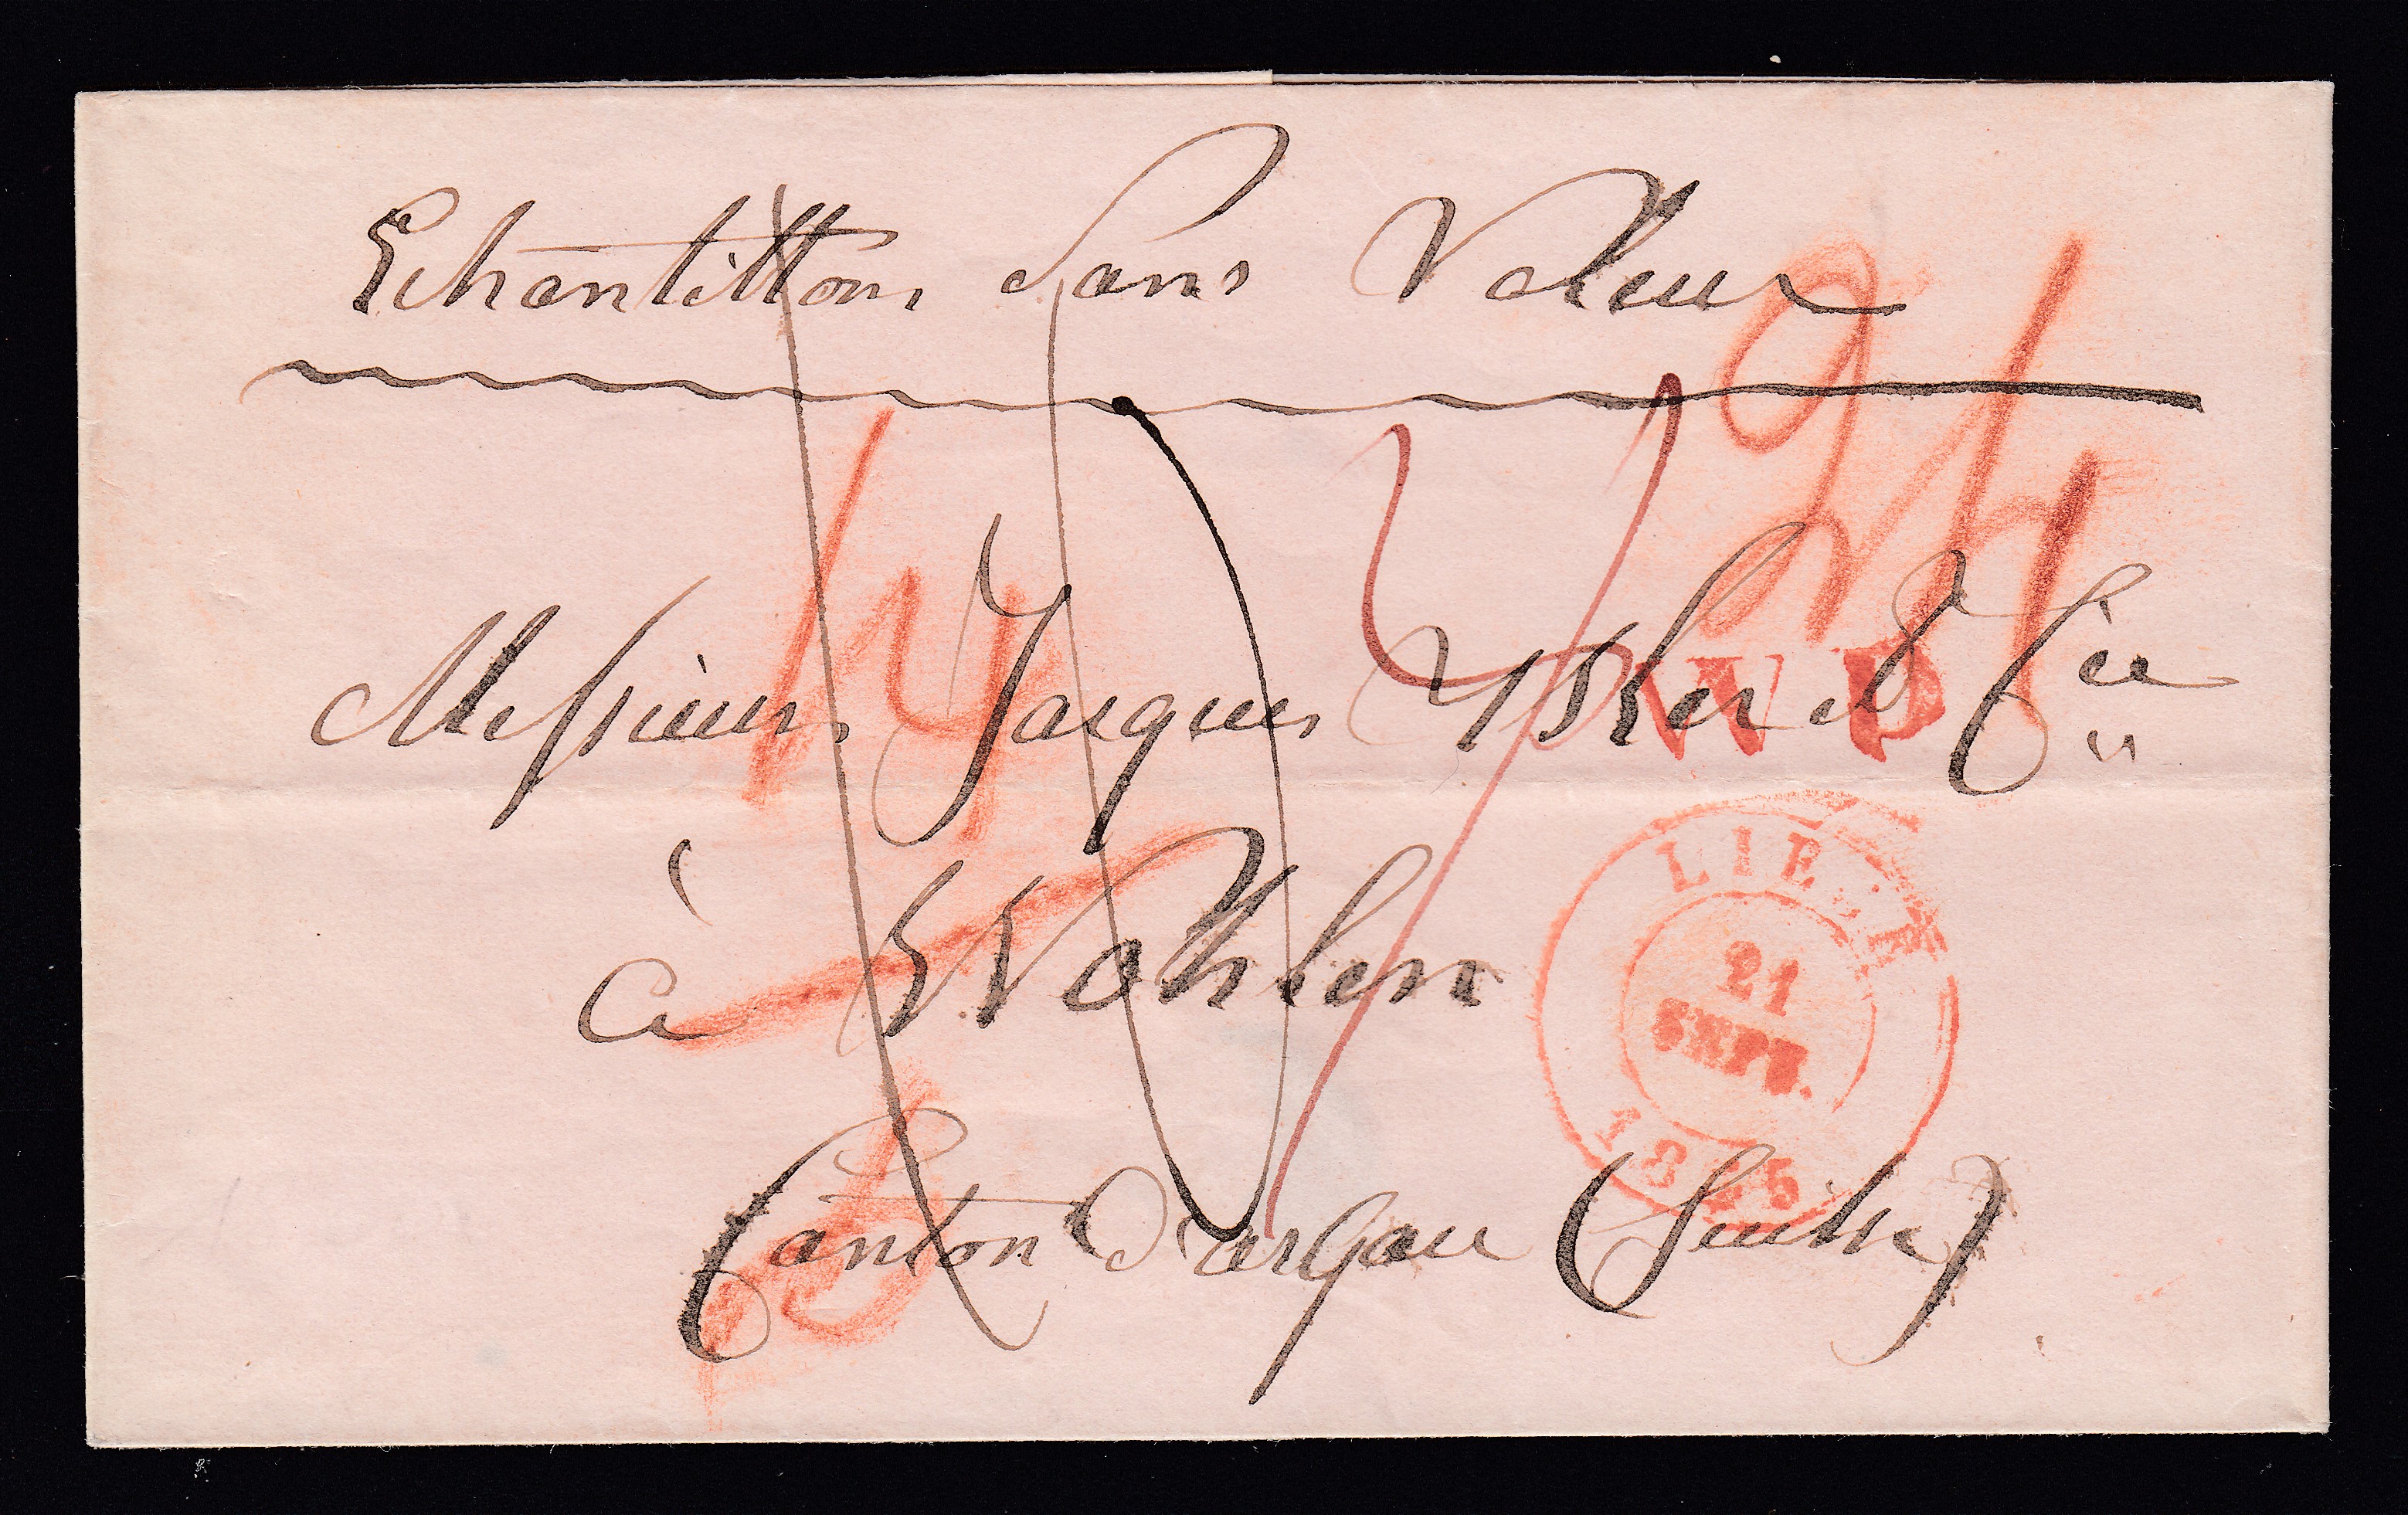 Echantillons Sans Valeur
Messieurs Jacques Isler & Cie
à Wohlen
Canton d'argau (Suisse)
LIEGE
21
SEPT.
1845